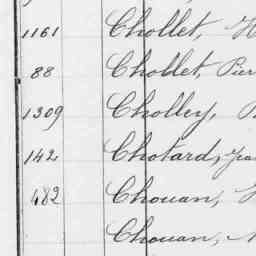 1161 Chollet, H
88 Chollet, Pier
1309 Cholley,
142 Chotard, Jea
482 Chouan,
Chouan,